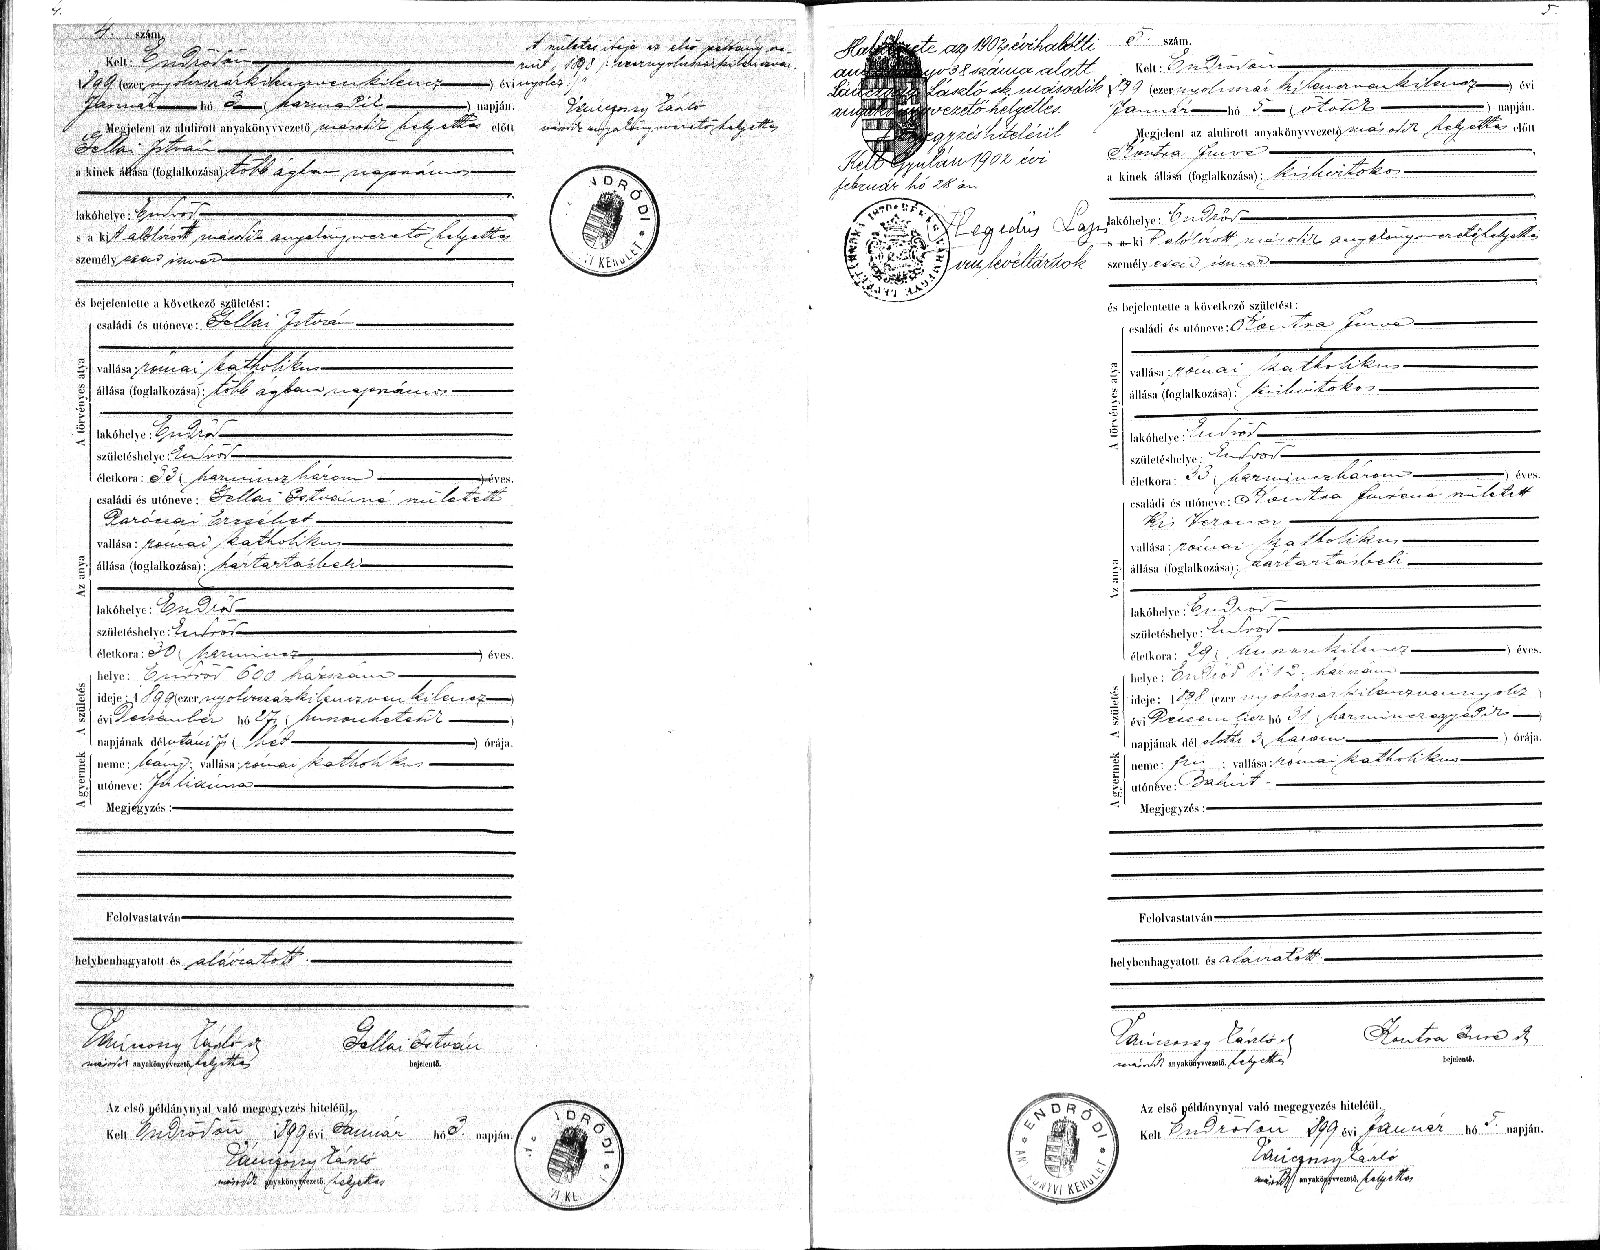 4.
4. szám.
Kelt: Endrődön
1899 (ezer nyolczszázkilenczvenkilencz) évi
Január hó 3 (harmadik) napján.
Megjelent az alulirott anyakönyvvezető második helyettes előtt
Gellai István
a kinek állása (foglalkozása): több ágban napszámos
lakóhelye: Endrőd
s a kit alólírott második anyakönyvvezető helyettes
személyesen ismer
és bejelentette a következő születést:
A törvényes atya
családi és utóneve: Gellai István
vallása: római katholikus
állása (foglalkozása): több ágban napszámos
lakóhelye: Endrőd
születéshelye: Endrőd
életkora: 33 (harminczhárom) éves.
Az anya
családi és utóneve: Gellai Istvánné született
Erzsébet
vallása: római katholikus
állása (foglalkozása): háztartásbeli
lakóhelye: Endrőd
születéshelye: Endrőd
életkora: 30 (harmincz) éves.
A születés
helye: Endrőd 600 házszám
ideje: 1899 (ezer nyolczszázkilenczvenkilencz)
évi Deczember hó 27 (huszonhetedik)
napjának délutáni 7 (hét) órája.
A gyermek
neme: leány; vallása: római katholikus
utóneve: Juliánna
Megjegyzés:
Felolvastatván
helybenhagyatott és aláíratott.
László
második anyakönyvvezető helyettes
Gellai István
bejelentő.
Az első példánynyal való megegyezés hiteléül,
Kelt Endrődön, 1899 évi Január hó 3. napján.
László
második anyakönyvvezető helyettes
NDRŐDI
VI KE
A születés ideje az első példány sze-
rint 1898
László
második anyakönyvvezető helyettes
NDRŐDI
VI KERÜLET
5.
Halálesete az 1902 évi halotti
38 száma alatt
László sk. második
anyakönyvvezető helyettes
egyezés hiteléül
Kelt Gyulán 1902 évi
február hó 28 án
Hegedüs Lajos
vm. levéltárnok
5 szám.
Kelt: Endrődön
1899 (ezer nyolczszáz kilenczvenkilencz) évi
Január hó 5 (ötödik) napján.
Megjelent az alulirott anyakönyvvezető második helyettes előtt
Kontra Imre
a kinek állása (foglalkozása): kisbirtokos
lakóhelye: Endrőd
s a kit alólírott második anyakönyvvezető helyettes
személyesen ismer
és bejelentette a következő születést:
A törvényes atya
családi és utóneve: Kontra Imre
vallása: római katholikus
állása (foglalkozása): kisbirtokos
lakóhelye: Endrőd
születéshelye: Endrőd
életkora: 33 (harminczhárom) éves.
Az anya
családi és utóneve: Kontra Imréné született
Kis Veronka
vallása: római katholikus
állása (foglalkozása): háztartásbeli
lakóhelye: Endrőd
születéshelye: Endrőd
életkora: 29 (huszonkilencz) éves.
A születés
helye: Endrőd 1212 házszám
ideje: 1898 (ezer nyolczszázkilenczvennyolcz)
évi Deczember hó 31 (harminczegyedik)
napjának dél előtti 3 (három) órája.
A gyermek
neme: fiu; vallása: római katholikus
utóneve: Balint
Megjegyzés:
Felolvastatván
helybenhagyatott és aláíratott.
László
második anyakönyvvezető, helyettes
Kontra Imre
bejelentő.
Az első példánynyal való megegyezés hiteléül,
Kelt Endrődön 1899 évi Január hó 5. napján.
László
második anyakönyvvezető, helyettes
ENDRŐDI
ANYAKÖNYVI KERÜLET